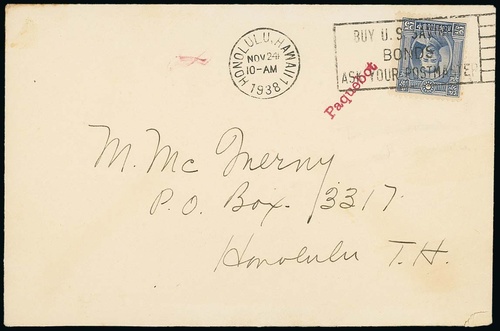 HONOLULU, HAWAII
NOV 24
10-AM
1938
BUY U.S. SAVINGS
BONDS
ASK YOUR POSTMASTER
Paquebot
M. Mc Inerny
P.O. Box. 3317
Honolulu T.H.